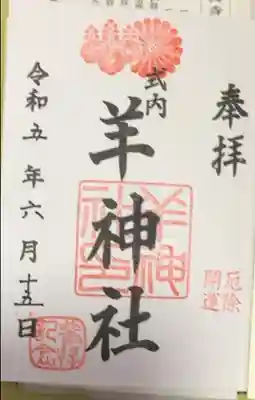 奉拝
厄除
開運
式内
羊神社
羊神
社印
令和五年六月十五日
参拝
記念